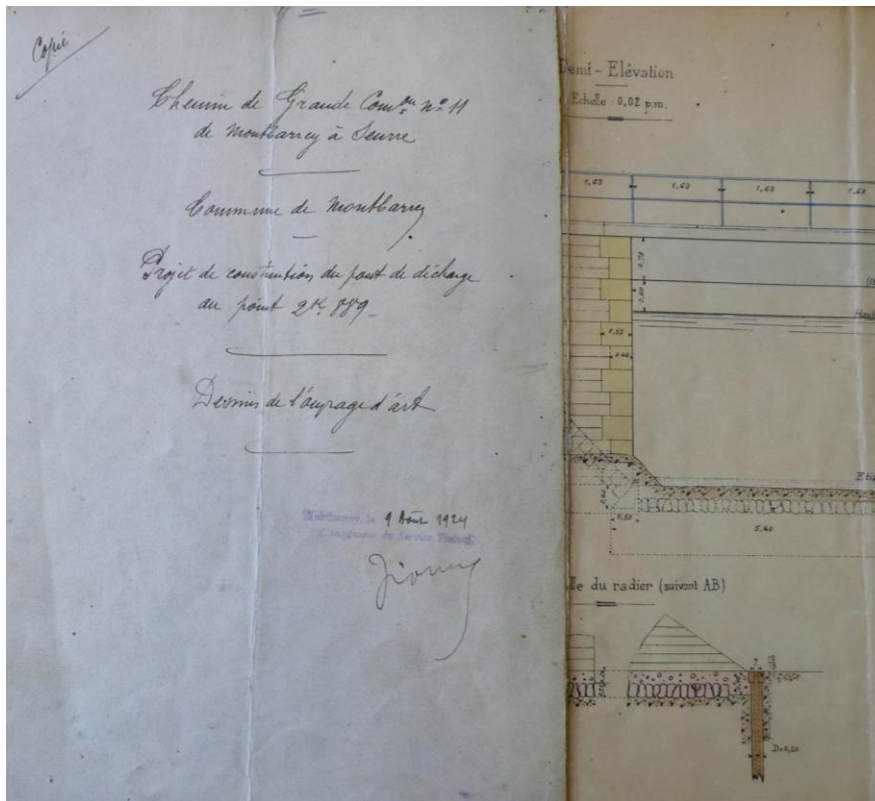 Copie
Chemin de Grande Com.on nº 11
de Montbarrey à Seurre
Commune de Montbarrey
Projet de construction du pont de décharge
au point 2K.889
Dessin de l'ouvrage d'art
Montbarrey, le 9 Août 1924
L'Ingénieur du Service Vicinal
Demi-Elévation
Echelle 0,02 p.m.
1,63 1,63 1,63 1,63
0,70
0,60
0,55
0,40
5,40
du radier (suivant AB)
D=0,20